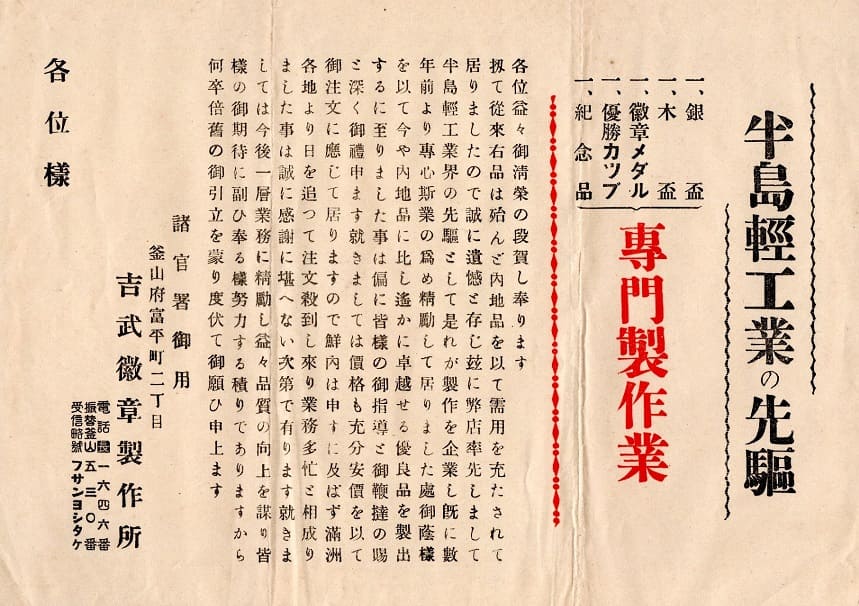 半島輕工業の先驅
一、銀盃
一、木盃
一、徽章メダル
一、優勝カツプ
一、紀念品
專門製作業
各位益々御淸榮の段賀し奉ります
扨て從來右品は殆んど內地品を以て需用を充たされて
居りましたので誠に遺憾と存じ玆に弊店率先しまして
半島輕工業界の先驅として是れが製作を企業し旣に數
年前より專心斯業の爲め精勵して居りました處御蔭樣
を以て今や內地品に比し遙かに卓越せる優良品を製出
するに至りました事は偏に皆樣の御指導と御鞭撻の賜
と深く御禮申ます就きましては價格も充分安價を以て
御注文に應じて居りますので鮮內は申すに及ばず滿洲
各地より日を追つて注文殺到し來り業務多忙と相成り
ました事は誠に感謝に堪へない次第で有ります就きま
しては今後一層業務に精勵し益々品質の向上を謀り皆
樣の御期待に副ひ奉る樣努力する積りでありますから
何卒倍舊の御引立を蒙り度伏て御願ひ申上ます
諸官署御用
釜山府富平町二丁目
吉武徽章製作所
電話國一六四六番
振替釜山五三〇番
受信略號フサンヨシタケ
各位樣